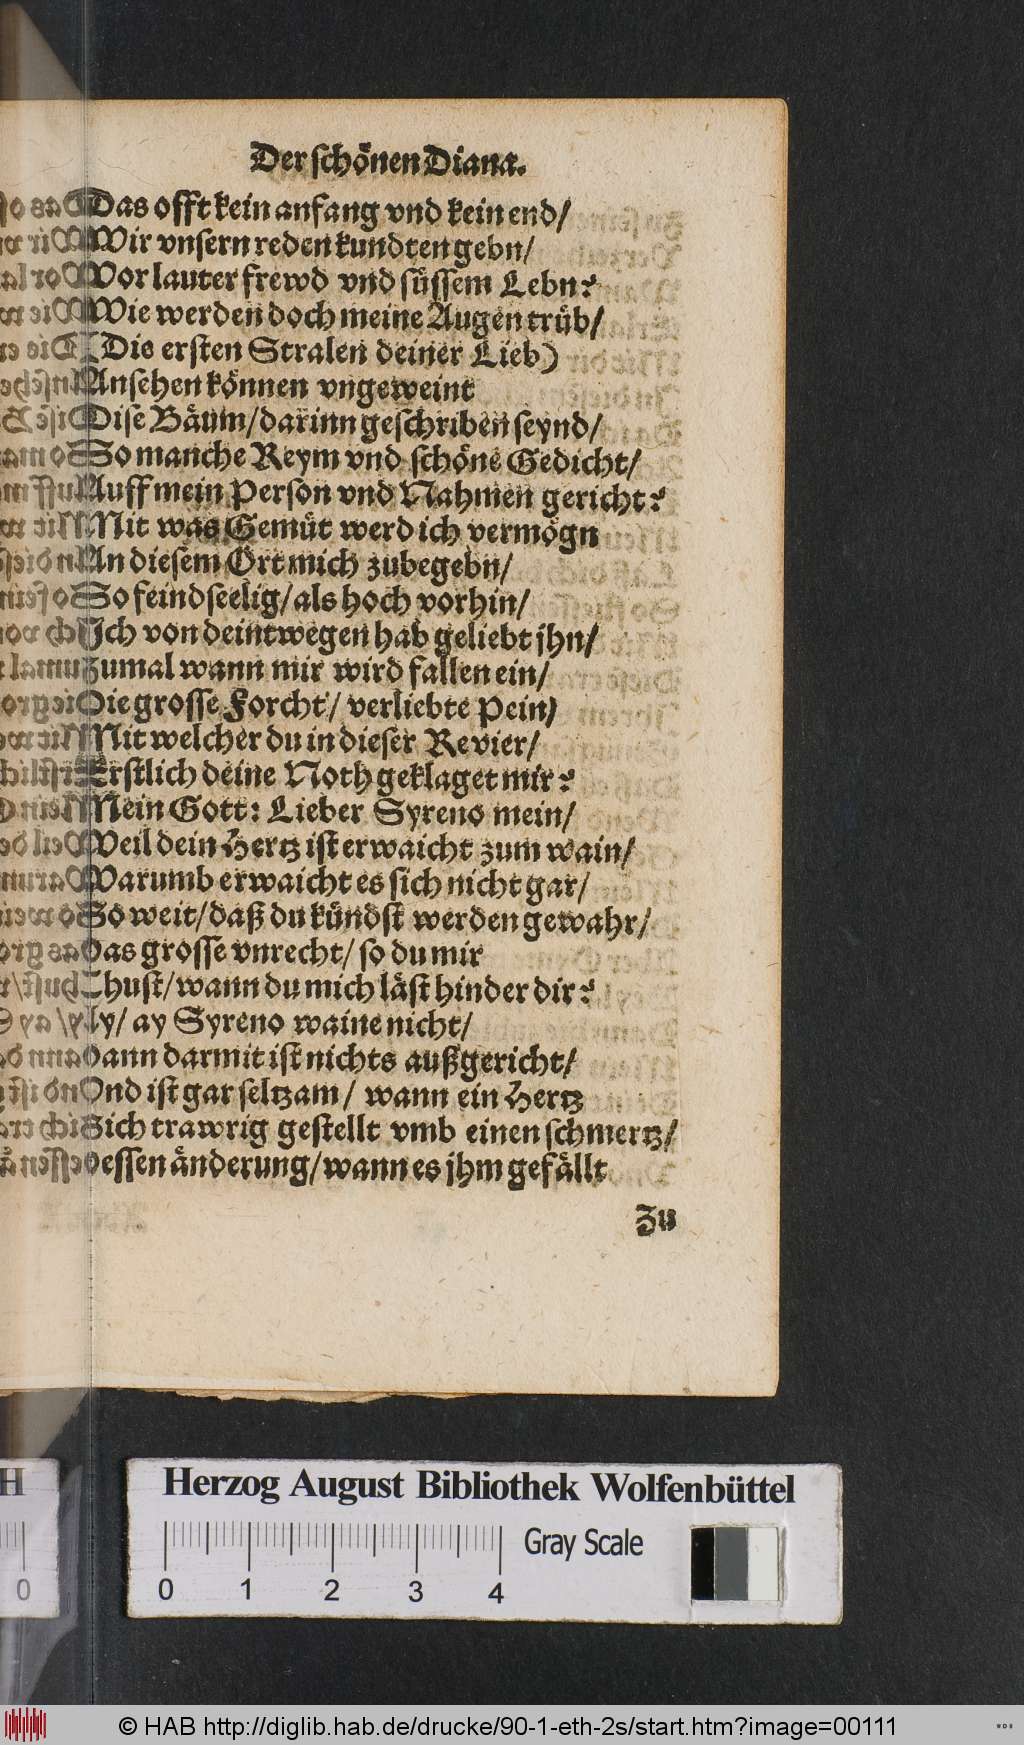 Der schönen Diana.
Das offt kein anfang vnd kein end/
Wir vnsern reden kundten gebn/
Vor lauter frewd vnd süssem Lebn?
Wie werden doch meine Augen trüb/
(Die ersten Stralen deiner Lieb)
Ansehen können vngeweint
Dise Bäum/darinn geschriben seynd/
So manche Reym vnd schöne Gedicht/
Auff mein Person vnd Nahmen gericht?
Mit was Gemüt werd ich vermögn
An diesem Ort mich zubegebn/
So feindseelig/als hoch vorhin/
Ich von deintwegen hab geliebt jhn/
Zumal wann mir wird fallen ein/
Die grosse Forcht/ verliebte Pein/
Mit welcher du in dieser Revier/
Erstlich deine Noth geklaget mir?
Mein Gott: Lieber Syreno mein/
Weil dein Hertz ist erwaicht zum wain/
Warumb erwaicht es sich nicht gar/
So weit/daß du kündst werden gewahr/
Das grosse vnrecht/ so du mir
Thust/wann du mich läst hinder dir?
Ay/ ay Syreno waine nicht/
Dann darmit ist nichts außgericht/
Vnd ist gar seltzam/ wann ein Hertz
Sich trawrig gestellt vmb einen schmertz/
Dessen änderung/wann es jhm gefällt
Zu
Herzog August Bibliothek Wolfenbüttel
0 1 2 3 4
Gray Scale
H
0
© HAB http://diglib.hab.de/drucke/90-1-eth-2s/start.htm?image=00111